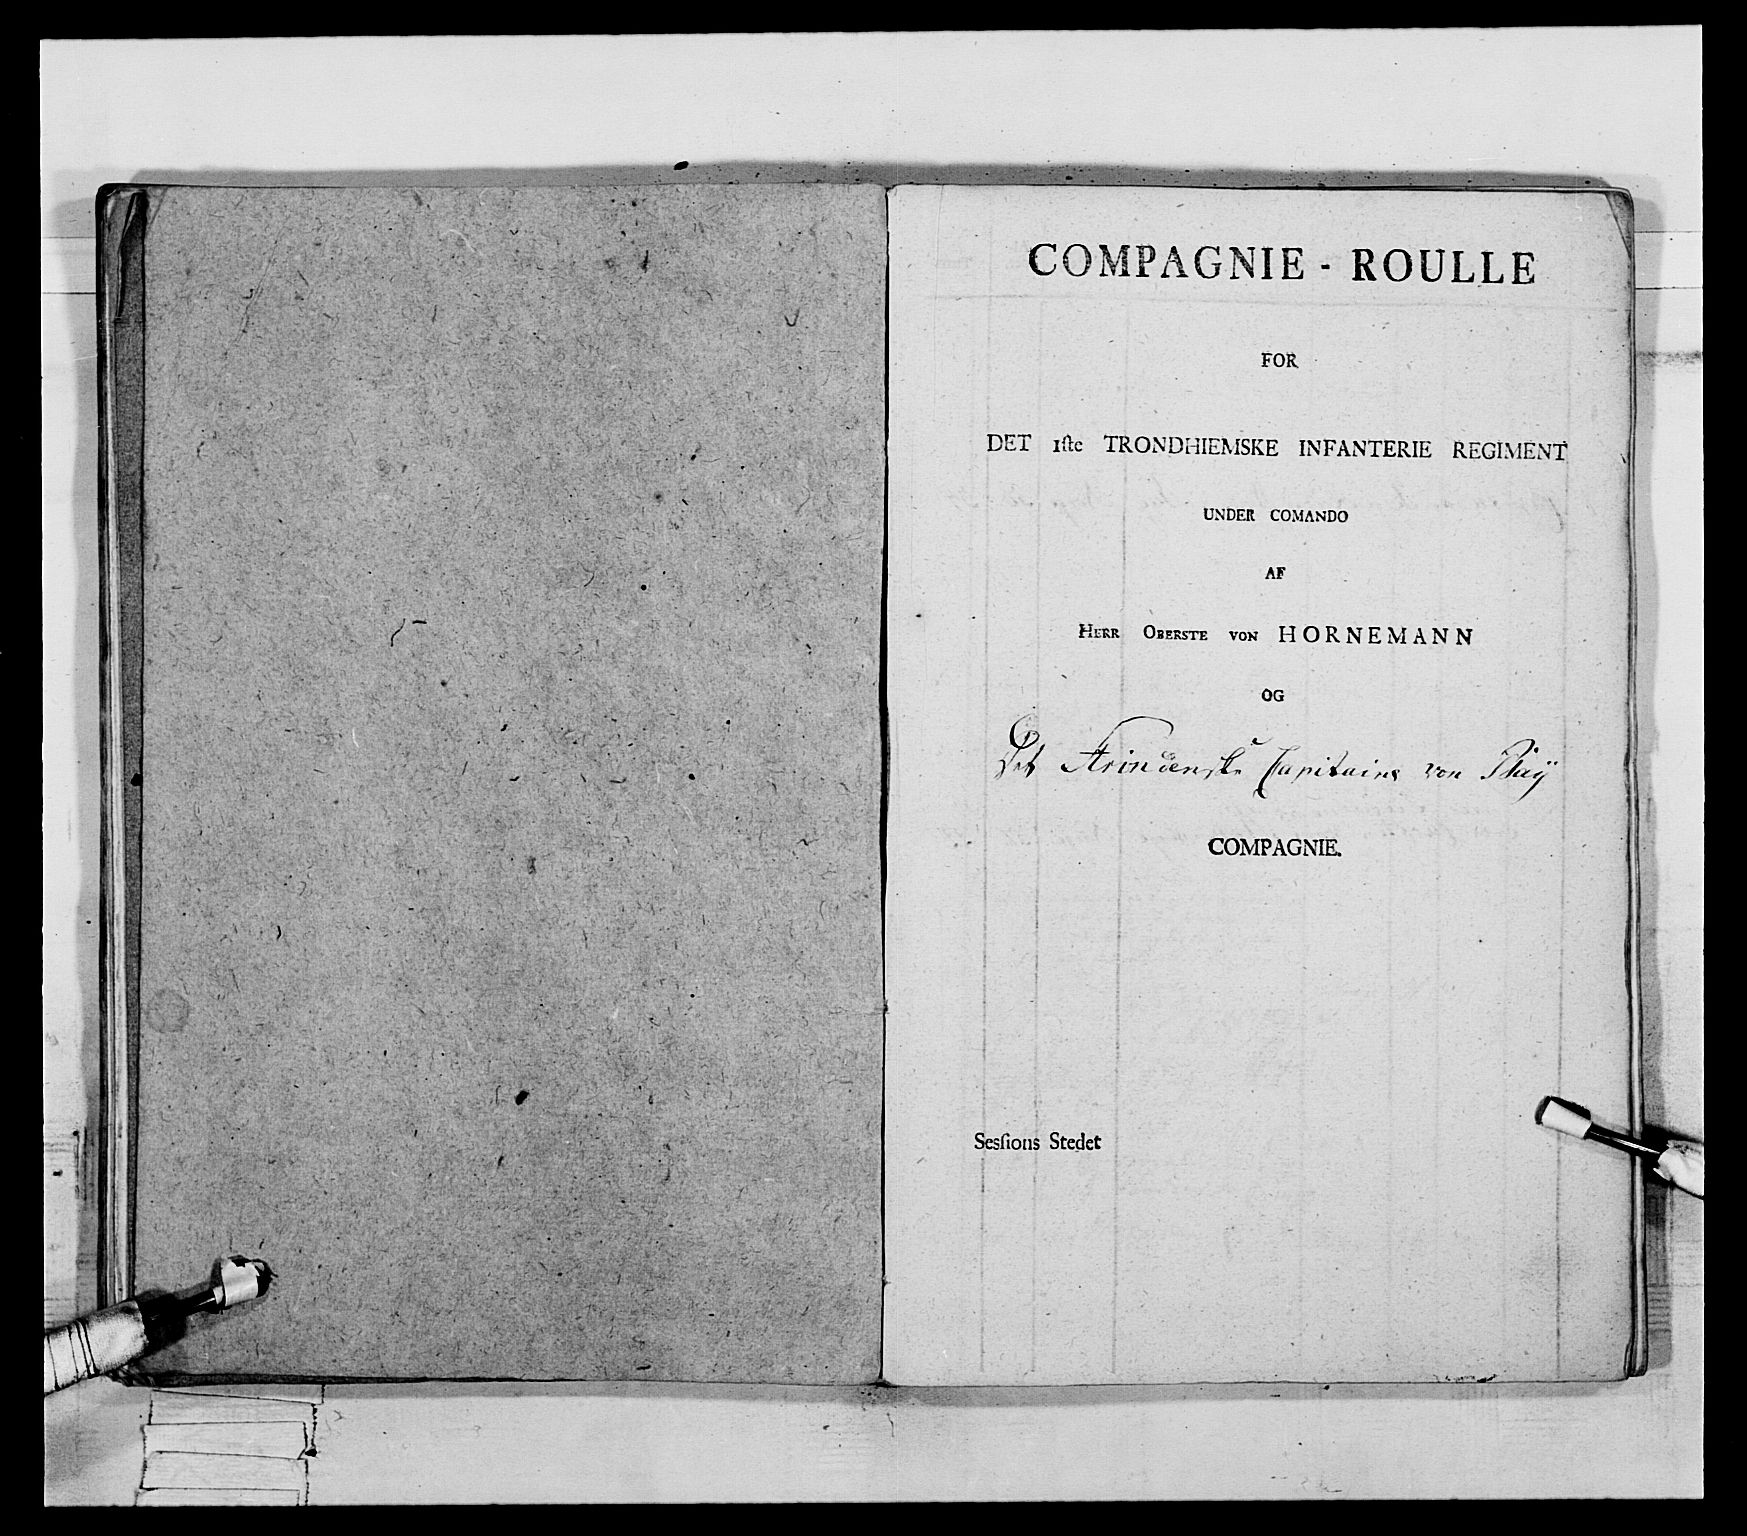 COMPAGNIE - ROULLE
FOR
DET 1ſte TRONDHIEMSKE INFANTERIE REGIMENT
UNDER COMANDO
AF
HERR OBERSTE VON HORNEMANN
OG
Det Strindenske Capitaine von
COMPAGNIE.
Sesſions Stedet